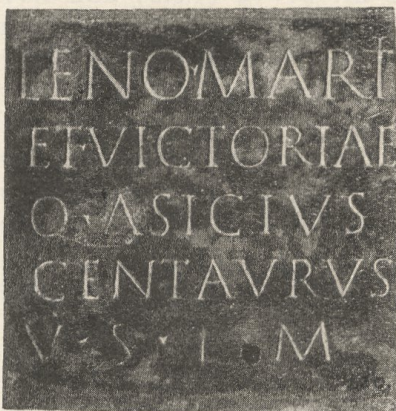 LENO·MARTI
ET·VICTORIAE
Q·ASICIVS
CENTAVRVS
V·S·L·M